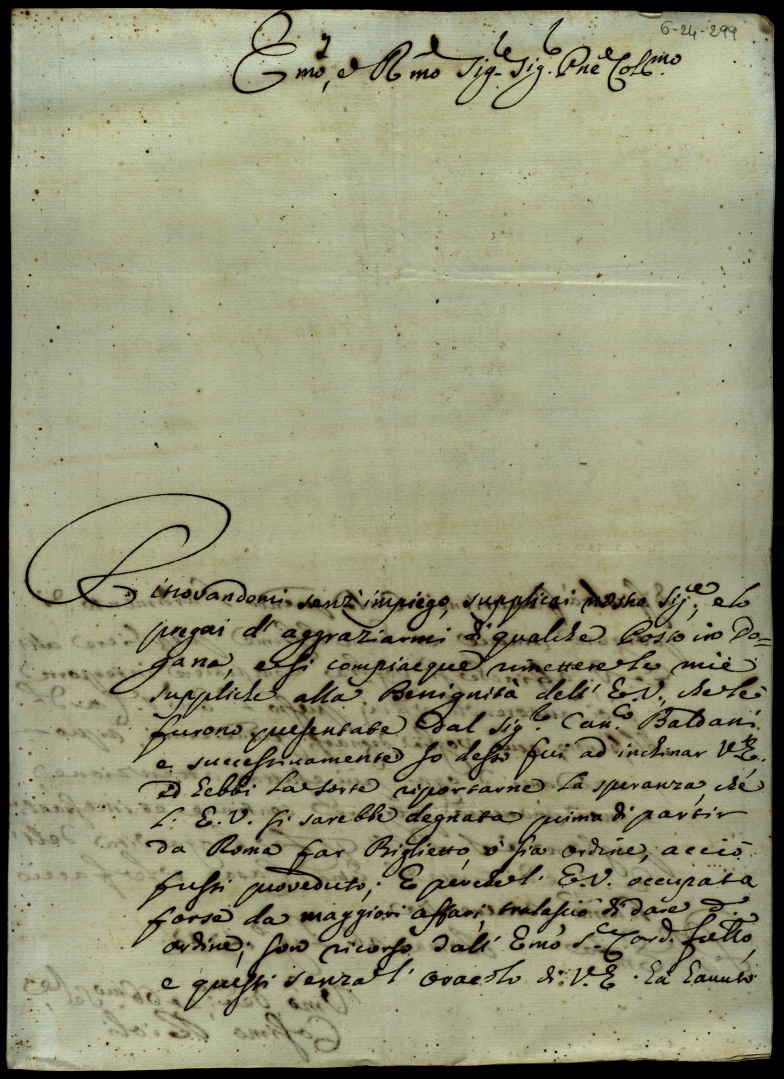 6-24-299
Emo, e Rmo Sig.re Sig.r Pne Colmo
Ritrovandomi senz' impiego, supplicai nostro Sig.re, e lo
pregai d' aggraziarmi di qualche Posto in Do=
gana, e si compiacque rimettere le mie
suppliche alla Benignità dell' E.V. che le
furono presentate dal Sig.r Can.co Baldani
e successivamente Io desso fui ad inchinar V.E.
ed hebbi la sorte riportarne la speranza, che
l' E.V. si sarebbe degnata prima di partir
da Roma far Biglietto, ò sia ordine, acciò
fussi proveduto; E perche l' E.V. occupata
forse da maggiori affari, tralasciò di dare d.o
ordine; sono ricorso dall' Emo S.r Card.
e questi senza l' oracolo di V.E. hà hauuto